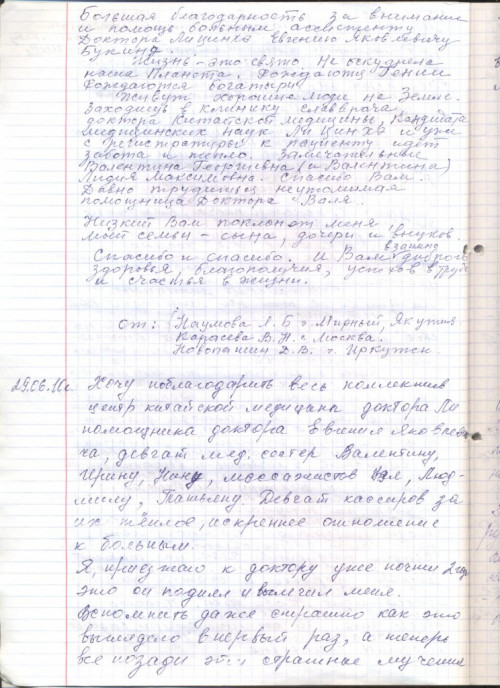 Большая благодарность за внимание
и помощь больным ассистенту
Доктора Ли Цинхэ Евгению Яковлевичу
Букинд.
Жизнь – это свято. Не оскудела
наша Планета. Рождаются Гении
Рождаются богатыри
Живут хорошие люди на Земле.
Заходишь в клинику Главврача
доктора Китайской медицины, Кандидата
медицинских наук Ли Цинхэ и уже
с регистратуры к пациенту идёт
забота и тепло. Замечательные
Валентина Георгиевна (и Валентина)
Лидия Максимовна. Спасибо Вам.
Давно трудитесь неутомимая
помощница Доктора Валя.
Низкий Вам поклон от меня
моей семьи – сына, дочери и внуков.
Спасибо и спасибо. И Вам взаимно доброго
здоровья, благополучия, успехов в труде
и счастья в жизни.
от: Наумова Л. Б г. Мирный, Якутия
Карасева В. Н. г. Москва.
Новопашин Д. В. г. Иркутск.
29.06.11г. Хочу поблагодарить весь коллектив
центр китайской медицины доктора Ли
помощника доктора Евгения Яковлеви
ча, девчат мед. сестер Валентину,
Ирину, Нину, массажистов Людмилу, Татьяну. Девчат кассиров за
их тёплое, искреннее отношение
к больным.
Я приезжаю к доктору уже почти 2 года
это он поднял и вылечил меня.
Вспомнить даже страшно как это
выглядело в первый раз, а теперь
все позади эти страшные мучения